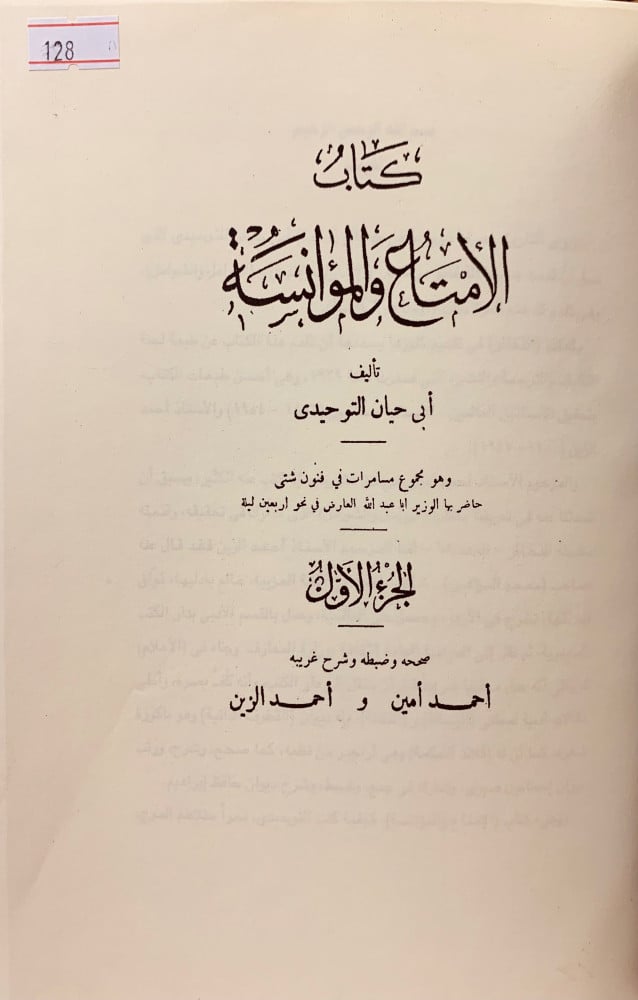 128
كتاب
الأمتاع والمؤانسة
تأليف
أبى حيان التوحيدى
وهو مجموع مسامرات في فنون شتى
حاضر بها الوزير ابا عبد الله العارض في نحو اربعين ليلة
الجزء الأول
صححه وضبطه وشرح غريبه
أحمد أمين و أحمد الزين